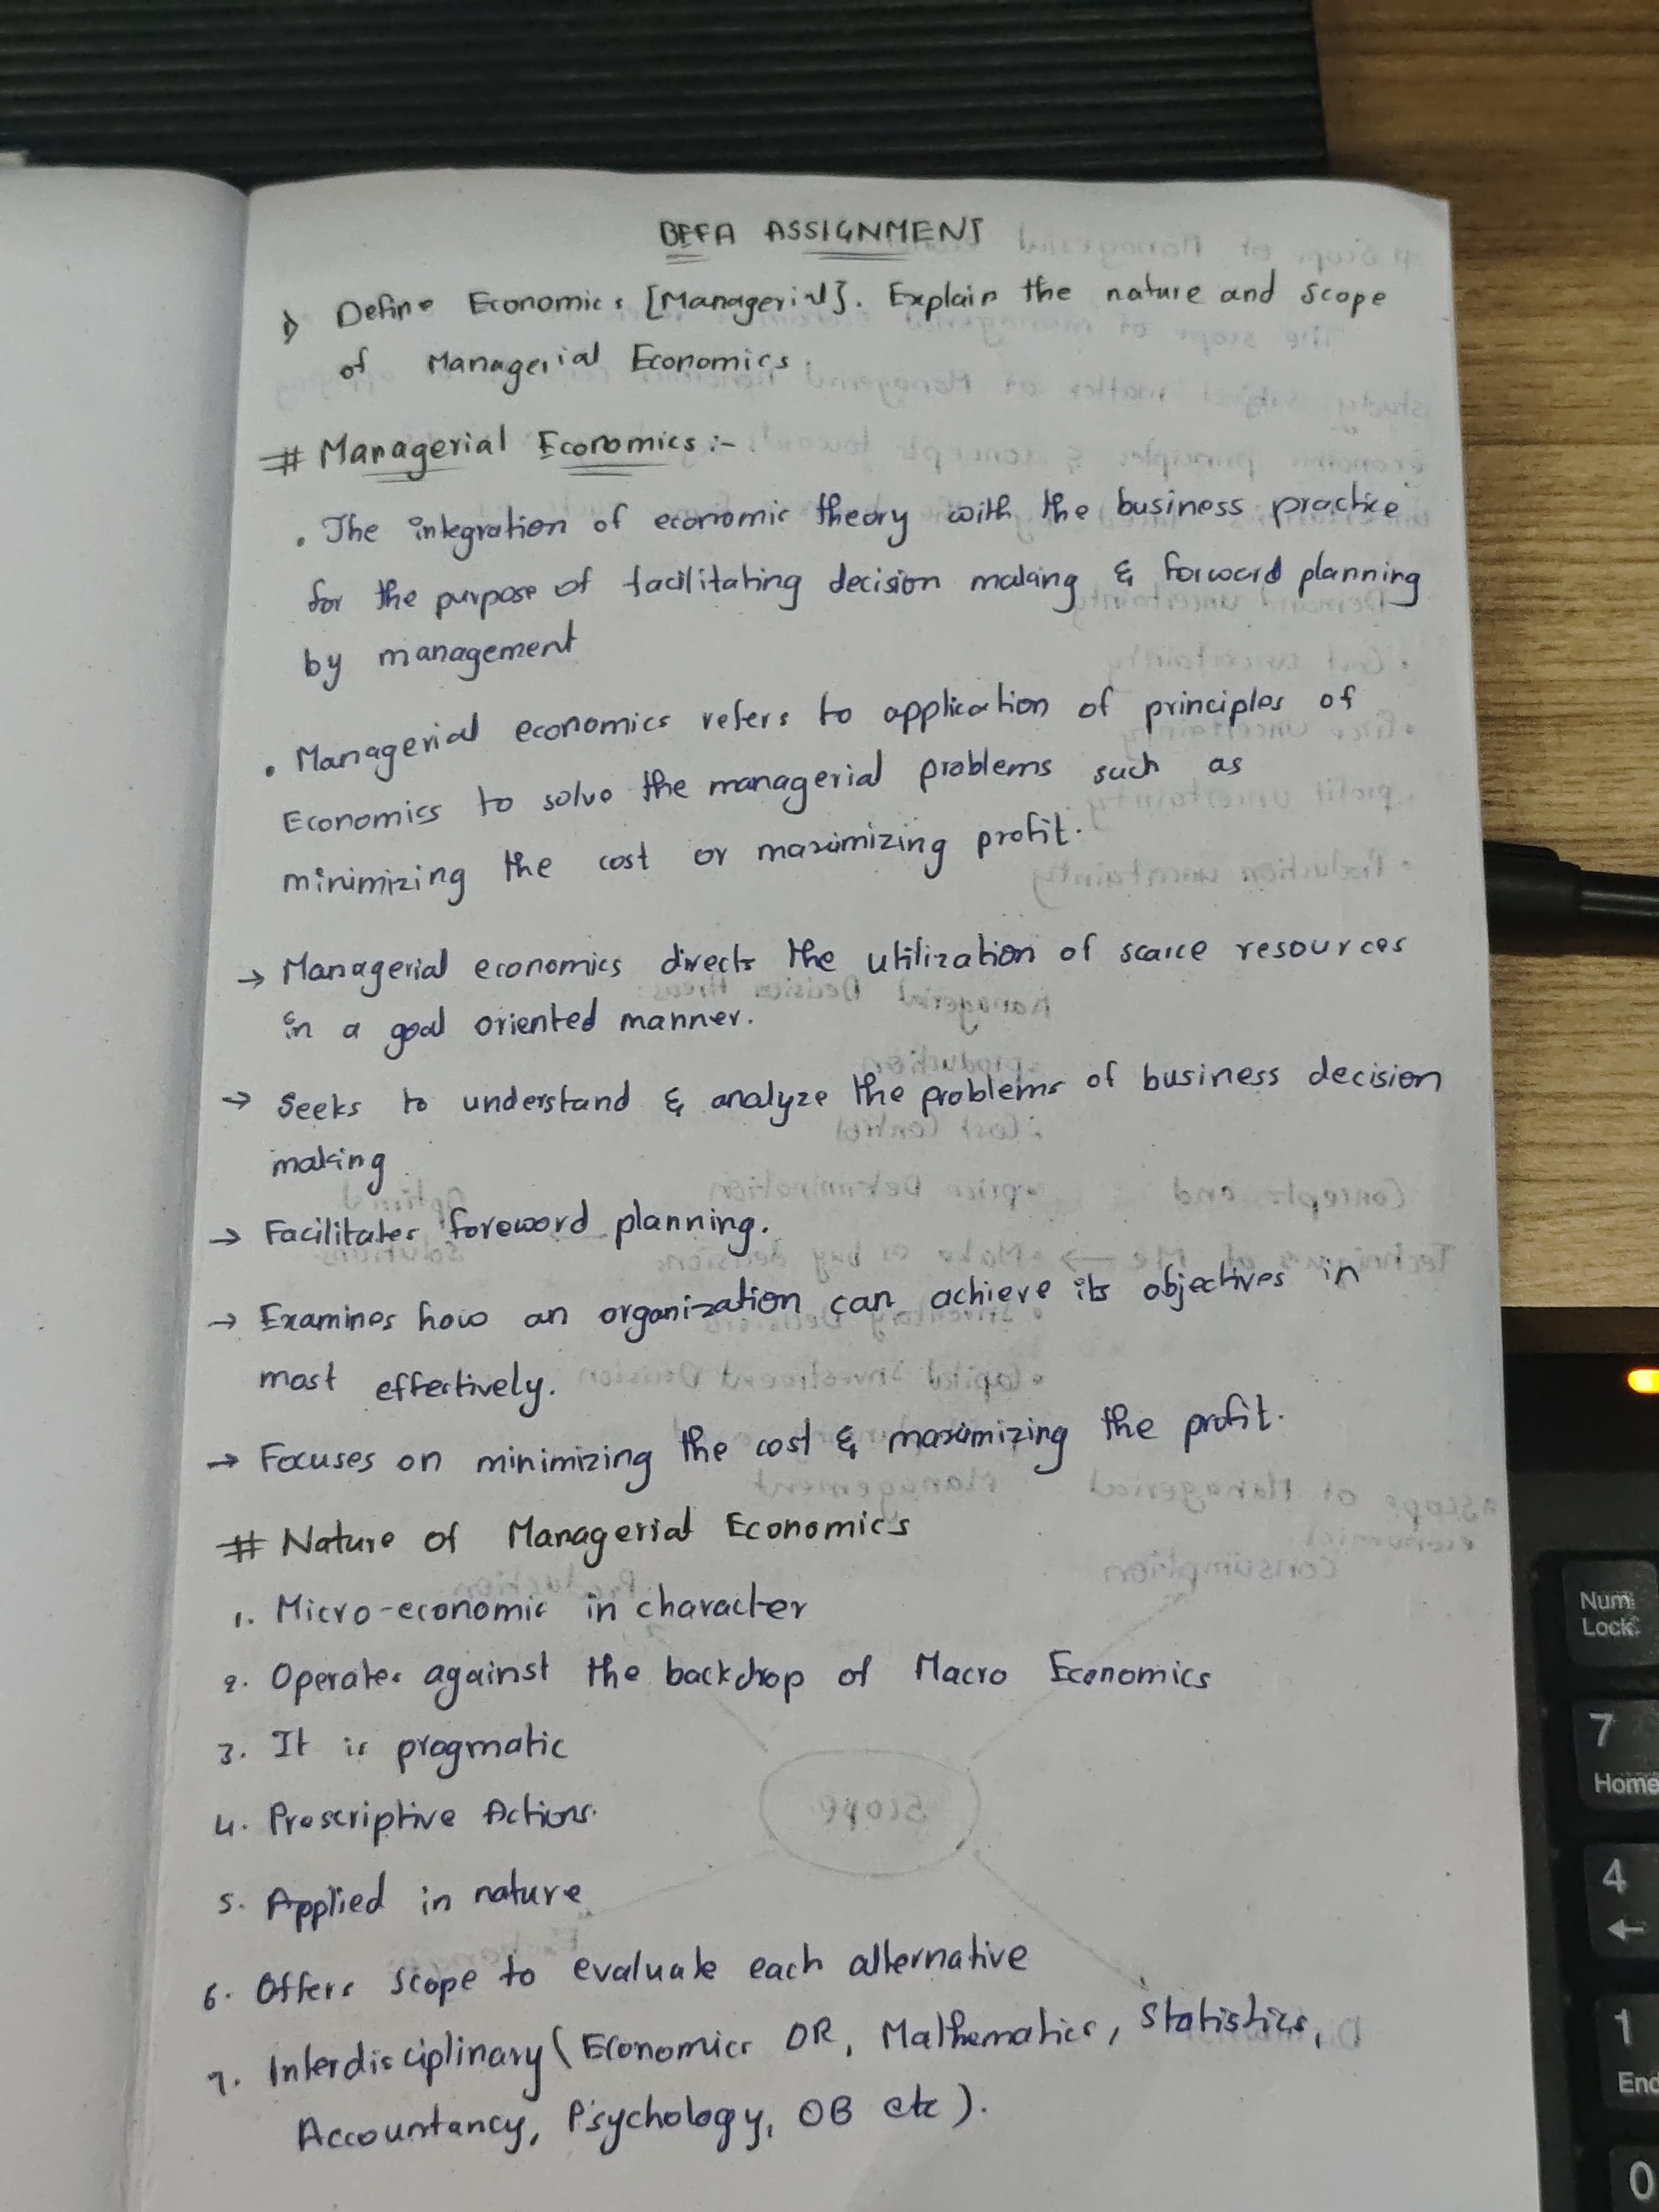 BEFA ASSIGNMENT
1) Define Economics [Managerial]. Explain the nature and scope
of Managerial Economics.
# Managerial Economics :-
. The integration of economic theory with the business practice
for the purpose of facilitating decision making & forward planning
by management
. Managerial economics refers to application of principles of
Economics to solve the managerial problems such as
minimizing the cost or maximizing profit.
→ Managerial economics directs the utilization of scarce resources
in a goal oriented manner.
→ Seeks to understand & analyze the problems of business decision
making
→ Facilitates foreword planning.
→ Examines how an organization can achieve its objectives in
most effectively.
→ Focuses on minimizing the cost & maximizing the profit.
# Nature of Managerial Economics
1. Micro-economic in character
2. Operates against the backdrop of Macro Economics
3. It is pragmatic
4. Prescriptive Actions.
5. Applied in nature
6. Offers scope to evaluate each alternative
7. Interdisciplinary (Economics OR, Mathematics, Statistics,
Accountancy, Psychology, OB etc).
Num
Lock
7
Home
4
←
1
End
0